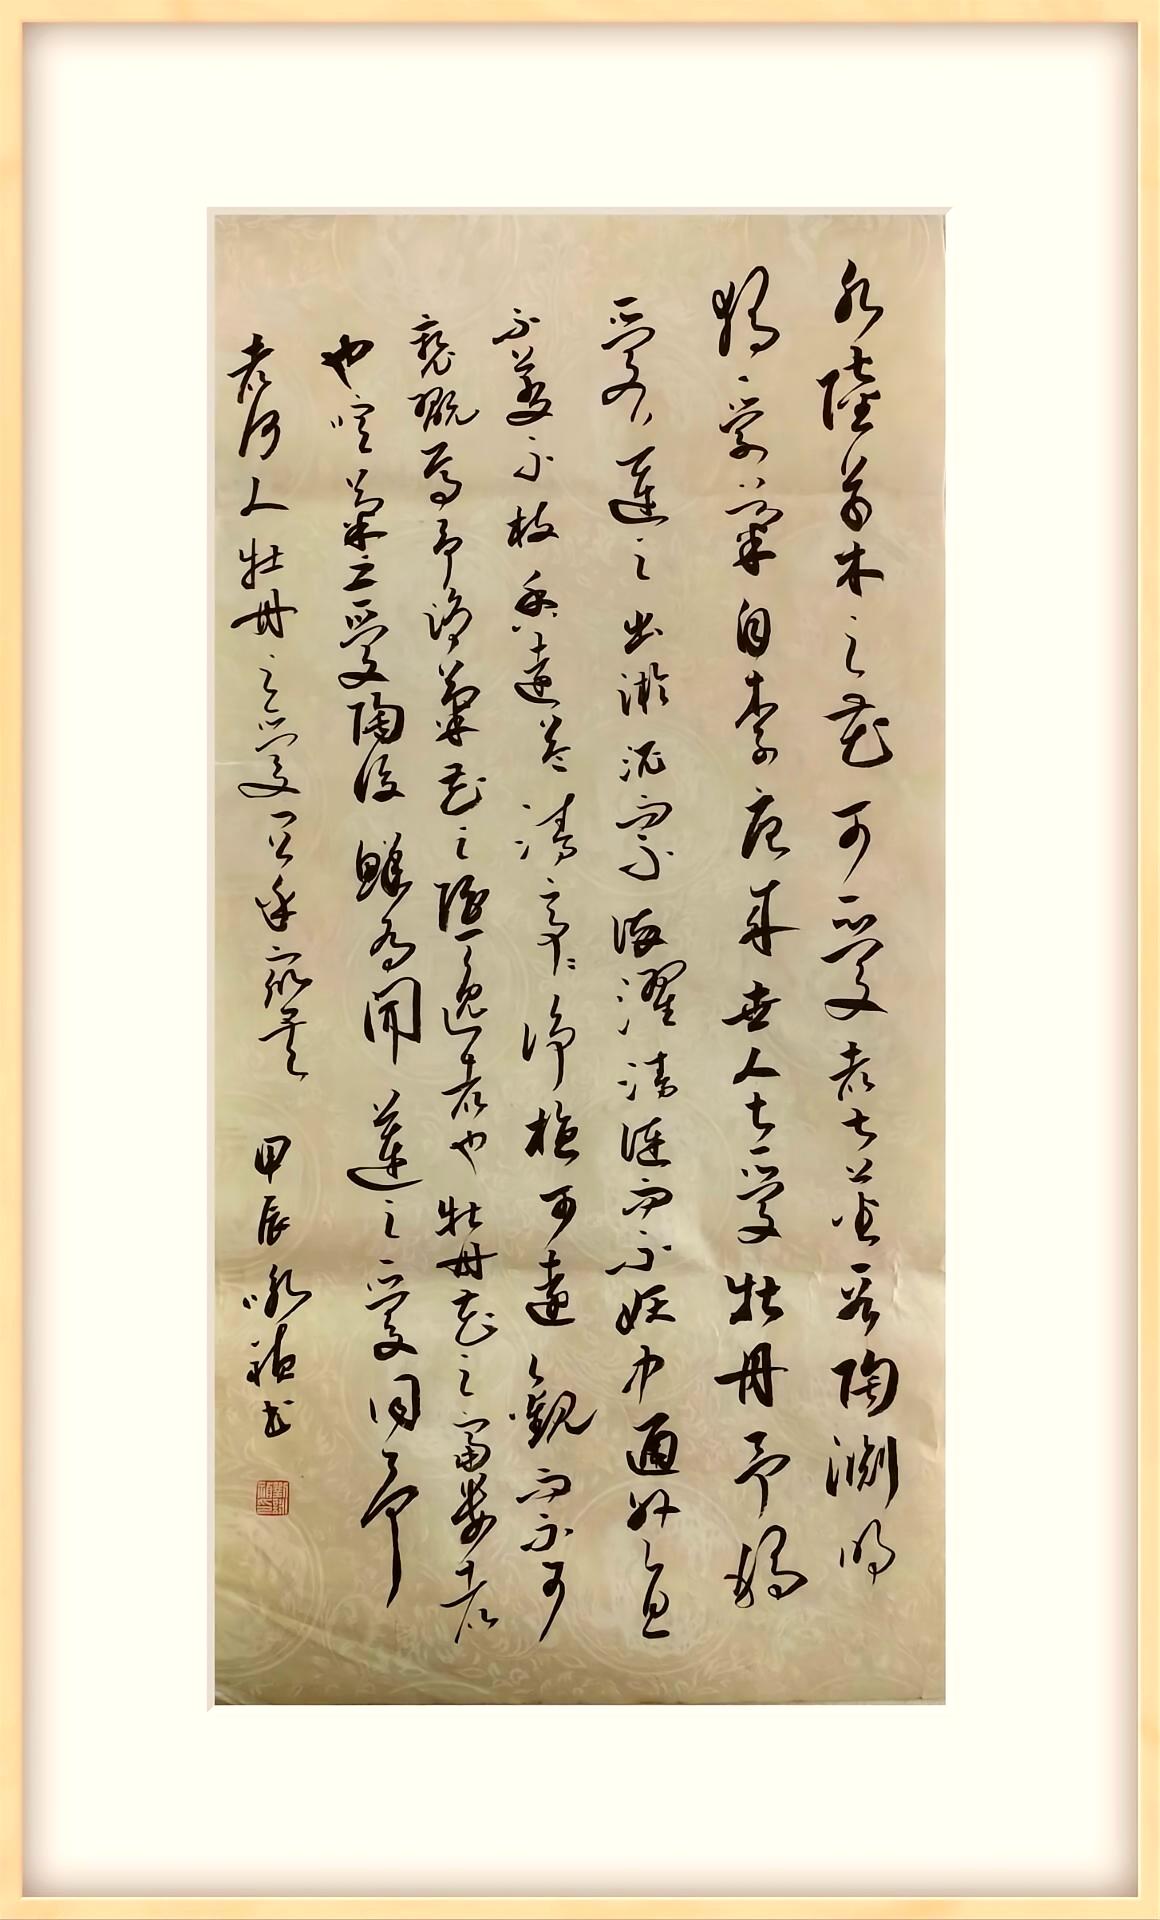 水陸草木之花可愛者甚蕃晉陶淵明
獨愛菊自李唐來世人甚愛牡丹予獨
愛蓮之出淤泥而不染濯清漣而不妖中通外直
不蔓不枝香遠益清亭亭净植可遠觀而不可
褻翫焉予謂菊花之隱逸者也牡丹花之富貴者
也噫菊之愛陶後鮮有聞蓮之愛同予
者何人牡丹之愛宜乎衆矣 甲辰 書